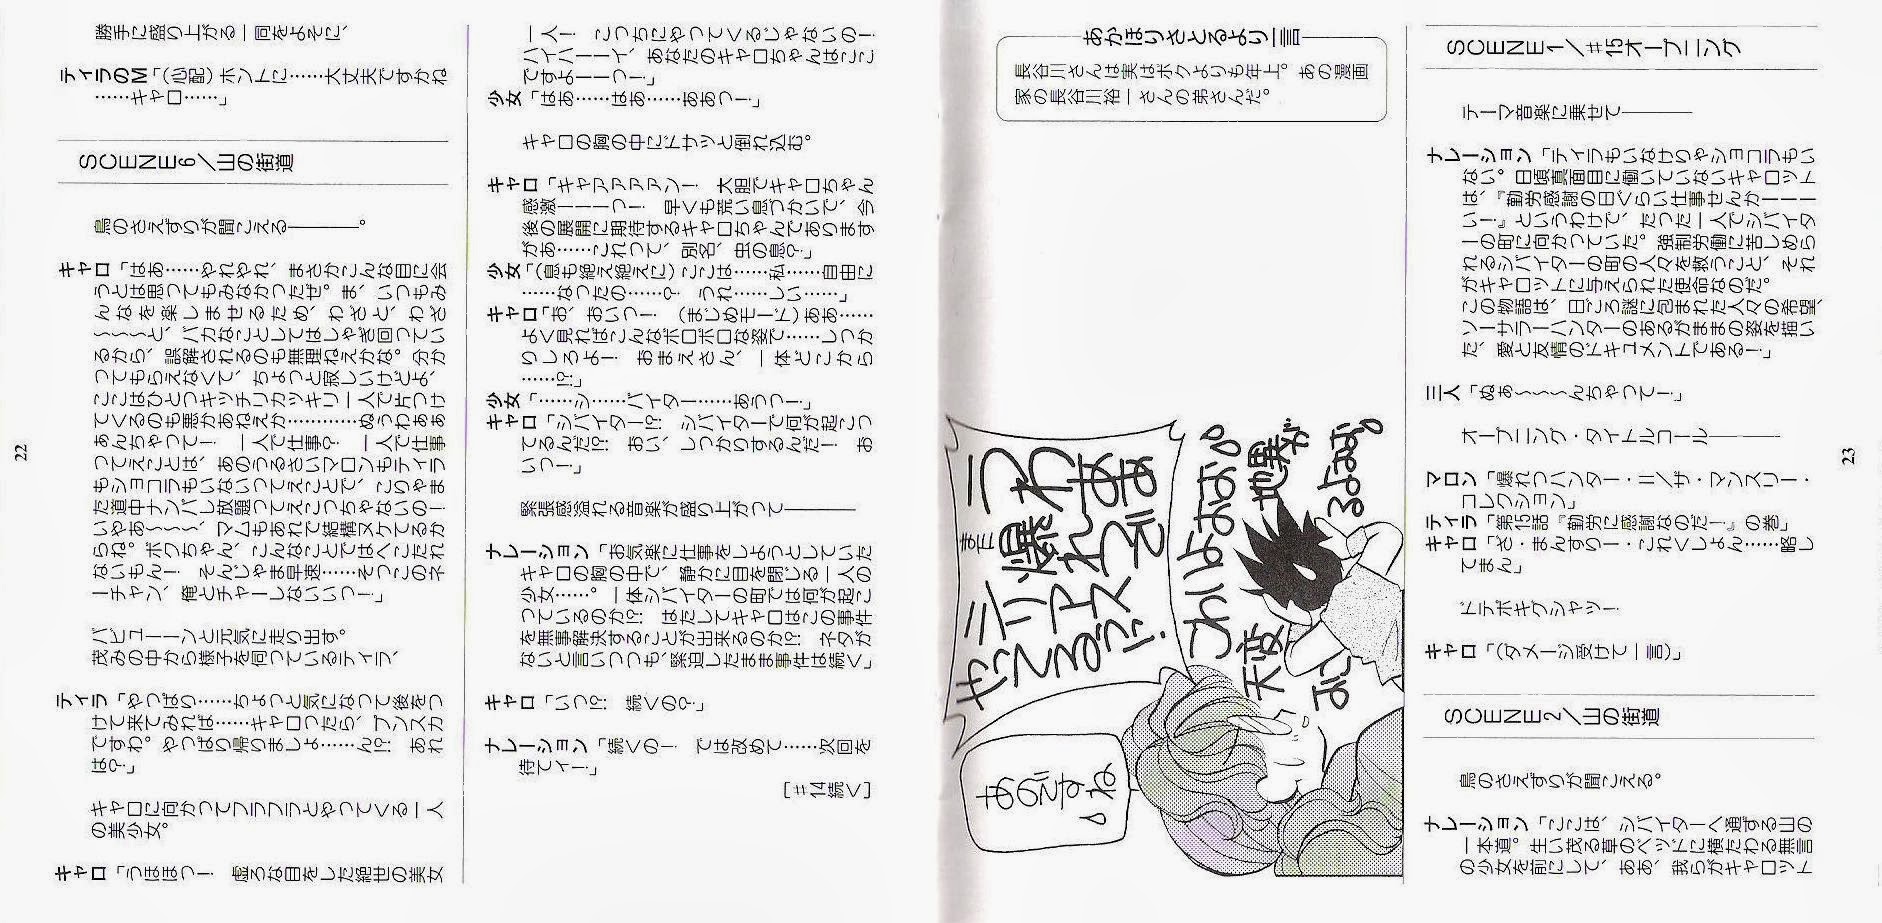 勝手に盛り上がる一同をよそに、
ティラのM「(心配)ホントに……大丈夫ですかね
……キャロ……」
SCENE6／山の街道
鳥のさえずりが聞こえる────。
キャロ「はあ……やれやれ、まさかこんな目に会
うとは思ってもみなかったぜ。ま、いつもみ
んなを楽しませるため、わざと、わざ
〜〜〜と、バカなことしてはしゃぎ回ってい
るから、誤解されるのも無理ねえかな。分か
ってもらえなくて、ちょっと寂しいけどよ、
ここはひとつキッチリカッキリ一人で片づけ
てくるのも悪かあねえか…………ぬぅわああ
あんちゃって！　一人で仕事？　一人で仕事
ってえことは、あのうるさいマロンもティラ
もショコラもいないってえことで、こりゃま
た道中ナンパし放題ってえこっちゃないの！
いやあ〜〜〜、マムもあれで結構ヌケてるか
らね。ボクちゃん、こんなことではへこたれ
ないもん！　そんじゃま早速……そっこのネ
ーチャン、俺とチャーしないいっ！」
バビューーンと元気に走り出す。
茂みの中から様子を伺っているティラ、
ティラ「やっぱり……ちょっと気になって後をつ
けて来てみれば……キャロったら、プンスカ
ですわ。やっぱり帰りましょ……ん!?　あれ
は？」
キャロに向かってフラフラとやってくる一人
の美少女。
キャロ「うほほっ！　虚ろな目をした絶世の美女
一人！　こっちにやってくるじゃないの！
ハイハーーイ、あなたのキャロちゃんはここ
ですよーーっ！」
少女「はあ……はあ……ああっ！」
キャロの胸の中にドサッと倒れ込む。
キャロ「キャアアアアン！　大胆でキャロちゃん
感激ーーーっ！　早くも荒い息づかいで、今
後の展開に期待するキャロちゃんであります
があ……これって、別名、虫の息？」
少女「(息も絶え絶えに)ここは……私……自由に
……なったの……？　うれ……しい……」
キャロ「お、おいっ！　(まじめモード)ああ……
よく見ればこんなボロボロな姿で……しっか
りしろよ！　おまえさん、一体どこから
……!?」
少女「……ジ……バイター……あうっ！」
キャロ「ジバイター!?　ジバイターで何が起こっ
てるんだ!?　おい、しっかりするんだ！　お
いっ！」
緊張感溢れる音楽が盛り上がって────
ナレーション「お気楽に仕事をしようとしていた
キャロの胸の中で、静かに目を閉じる一人の
少女……。一体ジバイターの町では何が起こ
っているのか!?　はたしてキャロはこの事件
を無事解決することが出来るのか!?　ネタが
ないと言いつつも、緊迫したまま事件は続く」
キャロ「いっ!?　続くの？」
ナレーション「続くの！　では改めて……次回を
待てイー！」
［#14続く］
22
あかほりさとるより一言
長谷川さんは実はボクよりも年上。あの漫画
家の長谷川裕一さんの弟さんだ。
まだ
うわあぁ
爆れつ
ラジメ
やってるですか!
あのですね
これはよおお
地爆が
大変
SCENE1／#15オープニング
テーマ音楽に乗せて────
ナレーション「ティラもいなけりゃショコラもい
ない。日頃真面目に働いていないキャロット
は、『勤労感謝の日くらい仕事せんかーーー
い！』というわけで、たった一人でジバイタ
ーの町に向かっていた。強制労働に苦しめら
れるジバイターの町の人々を救うこと、それ
がキャロットに与えられた使命なのだ。
この物語は、日ごろ謎に包まれた人々の希望、
ソーサラーハンターのあるがままの姿を描い
た、愛と友情のドキュメントである！」
三人「ぬぁ〜〜〜んちゃって！」
オープニング・タイトルコール────
マロン「爆れつハンター・II／ザ・マンスリー・
コレクション」
ティラ「第15話『勤労に感謝なのだ！』の巻」
キャロ「ざ・まんすりー・これくしょん……略し
てまん」
ドテボキグシャッ！
キャロ「(ダメージ受けて一言)」
SCENE2／山の街道
鳥のさえずりが聞こえる。
ナレーション「ここは、ジバイターへ通ずる山の
一本道。生い茂る草のベッドに横たわる無言
の少女を前にして、ああ、我らがキャロット
23